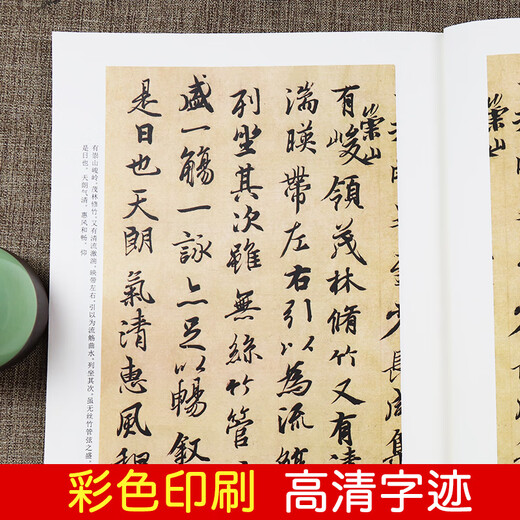 崇山
至少長咸集
有峻領茂林脩竹又有清
湍暎帶左右引以為流觴
列坐其次雖無絲竹管
盛一觴一詠亦足以暢敘
是日也天朗氣清惠風和
有崇山峻岭，茂林修竹；又有清流激湍，映带左右，引以为流觞曲水，列坐其次。虽无丝竹管弦之盛，
是日也，天朗气清，惠风和畅，仰
彩色印刷 高清字迹